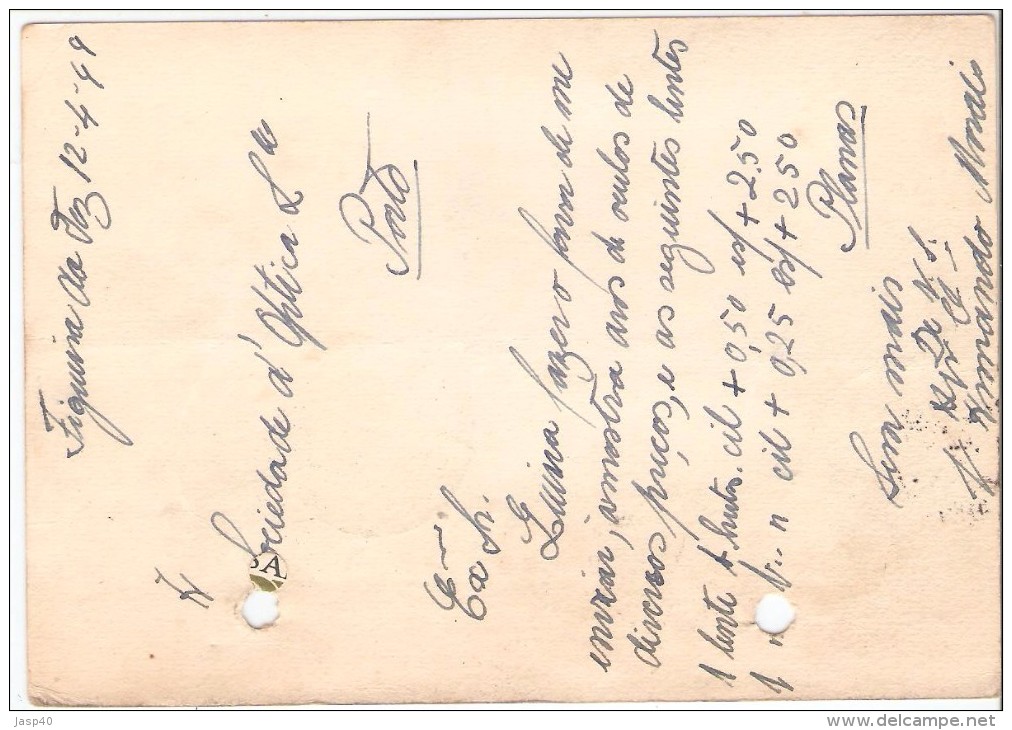 Figueira da Foz 12-4-49
Sociedade d'Optica Lda
Porto
Exmo Sr.
Queira fazer o favor de me
enviar, amostra aros de oculos de
diversos preços, e as seguintes lentes
1 lente cil + 0,50 esf + 2,50
1 " " cil + 0,25 esf + 2,50
Planas
Sem mais
De V. S.
Armando Morais
SA
Jasp40
www.delcampe.net